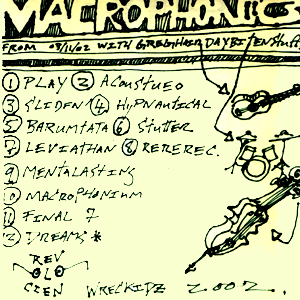 MACROPHONICS
FROM 03/11/02 WITH GREGHAIR DAYBITEN Stuff
1 PLAY 2 ACOUSTUEO
3 SLIDEN 4 HYPNAUTICAL
5 BARUMTATA 6 STUTTER
7 LEVIATHAN 8 REREREC.
9 MENTALASTING
10 MACROPHONIUM
11 FINAL 7
12 DREAMS *
REV
OLO
CIEN WRECKIDZ 2002.